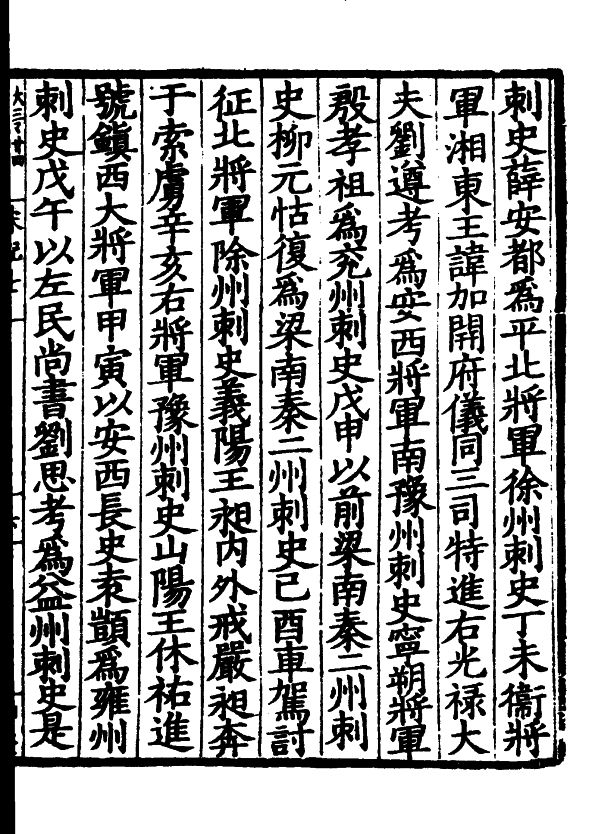 刺史薛安都爲平北將軍徐州刺史丁未衞將
軍湘東王諱加開府儀同三司特進右光祿大
夫劉遵考爲安西將軍南豫州刺史寧朔將軍
殷孝祖爲兖州刺史戊申以前梁南秦二州刺
史柳元怙復爲梁南秦二州刺史己酉車駕討
征北將軍除州刺史義陽王昶内外戒嚴昶奔
于索虜辛亥右將軍豫州刺史山陽王休祐進
號鎮西大將軍甲寅以安西長史袁顗爲雍州
刺史戊午以左民尚書劉思考爲益州刺史是